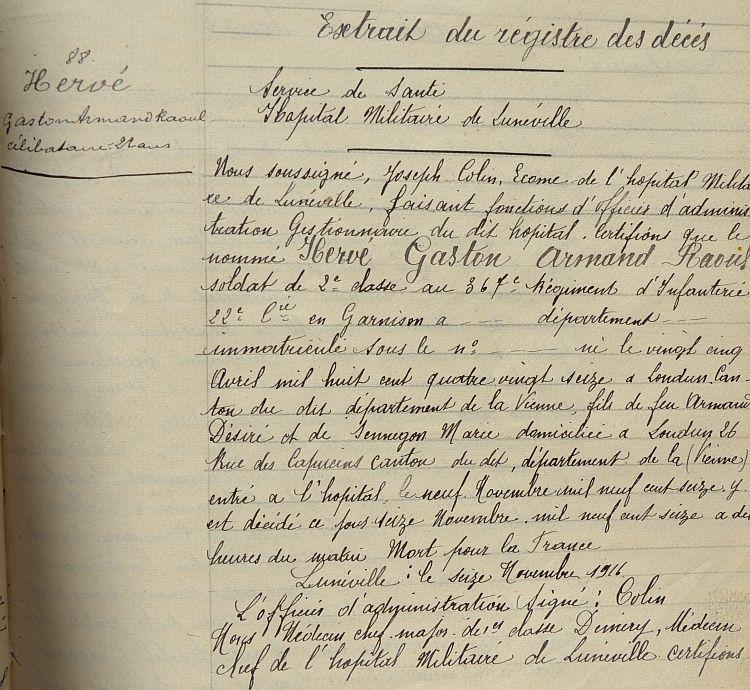 Extrait du régistre des décés
88.
Hervé
Gaston Armand Raoul
célibataire 21 ans
Service de Santé
Hopital Militaire de Lunéville
Nous soussigné, Joseph Colin, Econe de l'hopital Milita
re de Lunéville, faisant fonctions d'officier d'adminis
tration Gestionnaire du dit hopital. Certifions que le
nommé Hervé Gaston Armand Raoul
soldat de 2e classe au 367e Régiment d'Infanterie
22e Cie en Garnison a --- département ---
immatriculé sous le no. --- né le vingt cinq
Avril mil huit cent quatre vingt seize a Loudun Can-
ton du dit département de la Vienne, fils de feu Armand
Désiré et de Marie domiciliée a Loudun 26
Rue des Capucins canton du dit, département de la (Vienne)
entré a l'hopital, le neuf Novembre mil neuf cent seize. y
est décédé ce jour seize Novembre. mil neuf cent seize a
heures du matin Mort pour la France
Lunéville : le seize Novembre 1916
L'officier d'administration Signé : Colin
Nous Médecin chef major de 1er classe Demery, Médecin
chef de l'hopital Militaire de Lunéville certifions